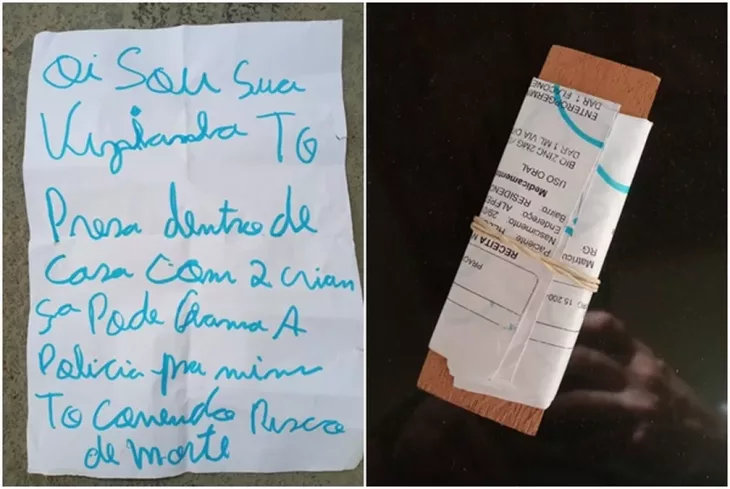 Oi Sou Sua
Vizinha TO
Presa dentro de
Casa Com 2 crian
ça Pode Chama A
Policia pra mim
To Correndo Risco
de morte
ENTEROGERMI
DAR 1 FLACONE
BIO ZINC 2MG/
DAR 1 ML VIA O
USO ORAL
Medicament
RESIDEN
Bairro:
Endereço:
ALFRE
Nascimento:
Paciente
RECEITA
Matrícu
RG
15.200